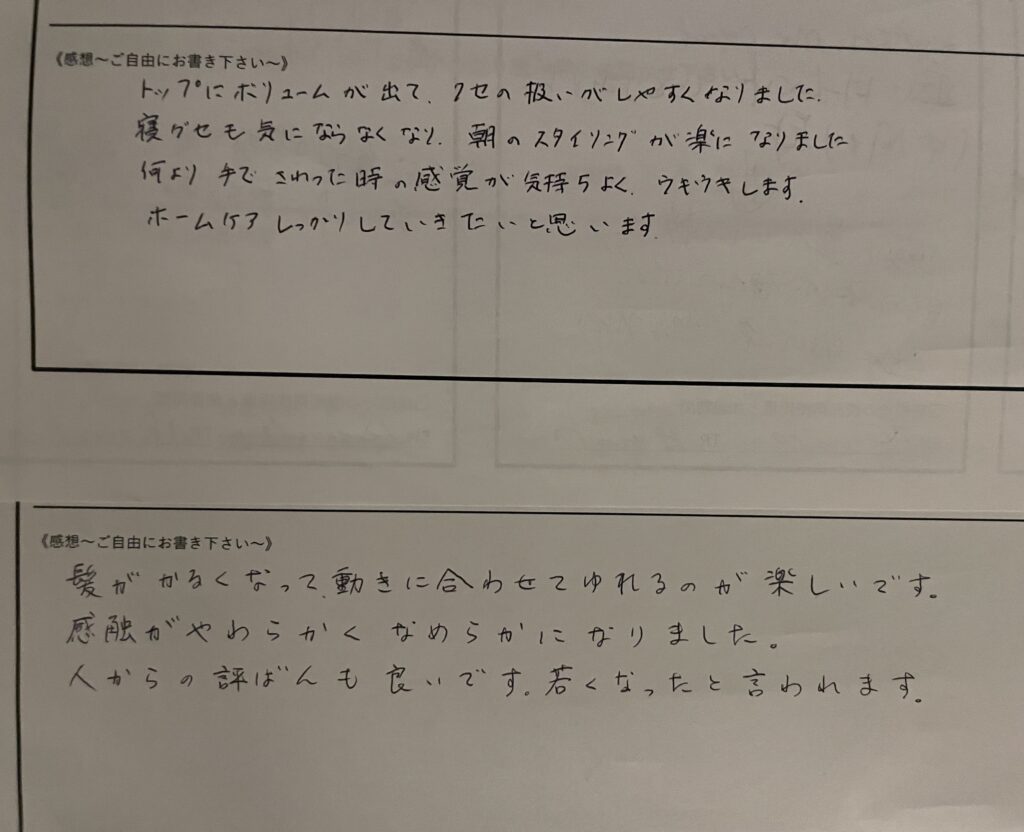 《感想~ご自由にお書き下さい~》
トップにボリュームが出て、クセの扱いがしやすくなりました.
寝グセも気にならなくなり、朝のスタイリングが楽になりました
何より手でさわった時の感覚が気持ちよく、ウキウキします.
ホームケアしっかりしていきたいと思います.
《感想~ご自由にお書き下さい~》
髪がかるくなって、動きに合わせてゆれるのが楽しいです。
感触がやわらかくなめらかになりました。
人からの評ばんも良いです。若くなったと言われます。